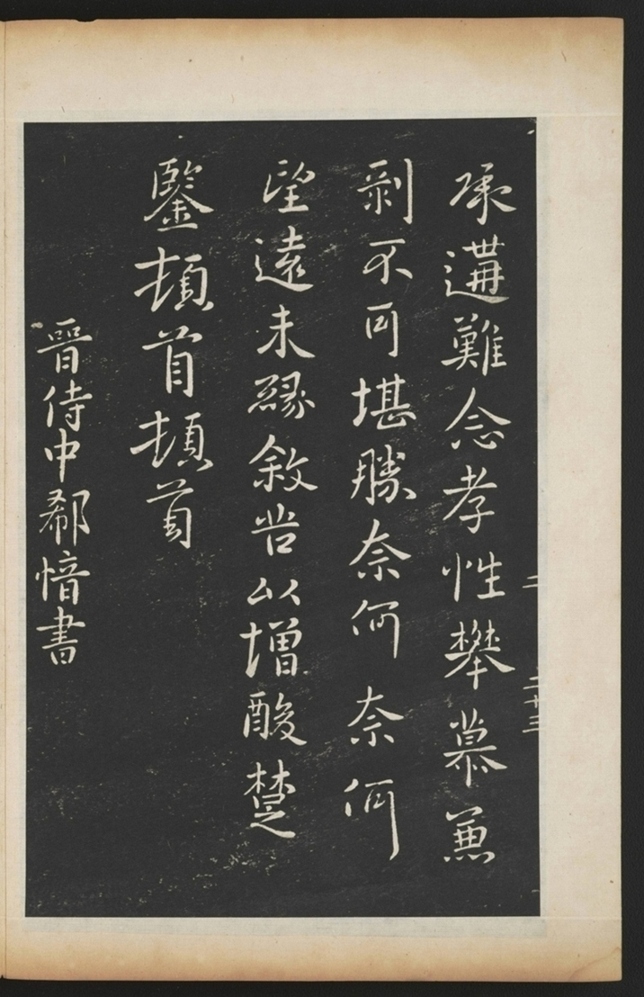 承遘難念孝性攀慕兼
剥不可堪勝奈何奈何
望遠未緣敘苦以增酸楚
鑒頓首頓首
晉侍中郗愔書
二 二十三